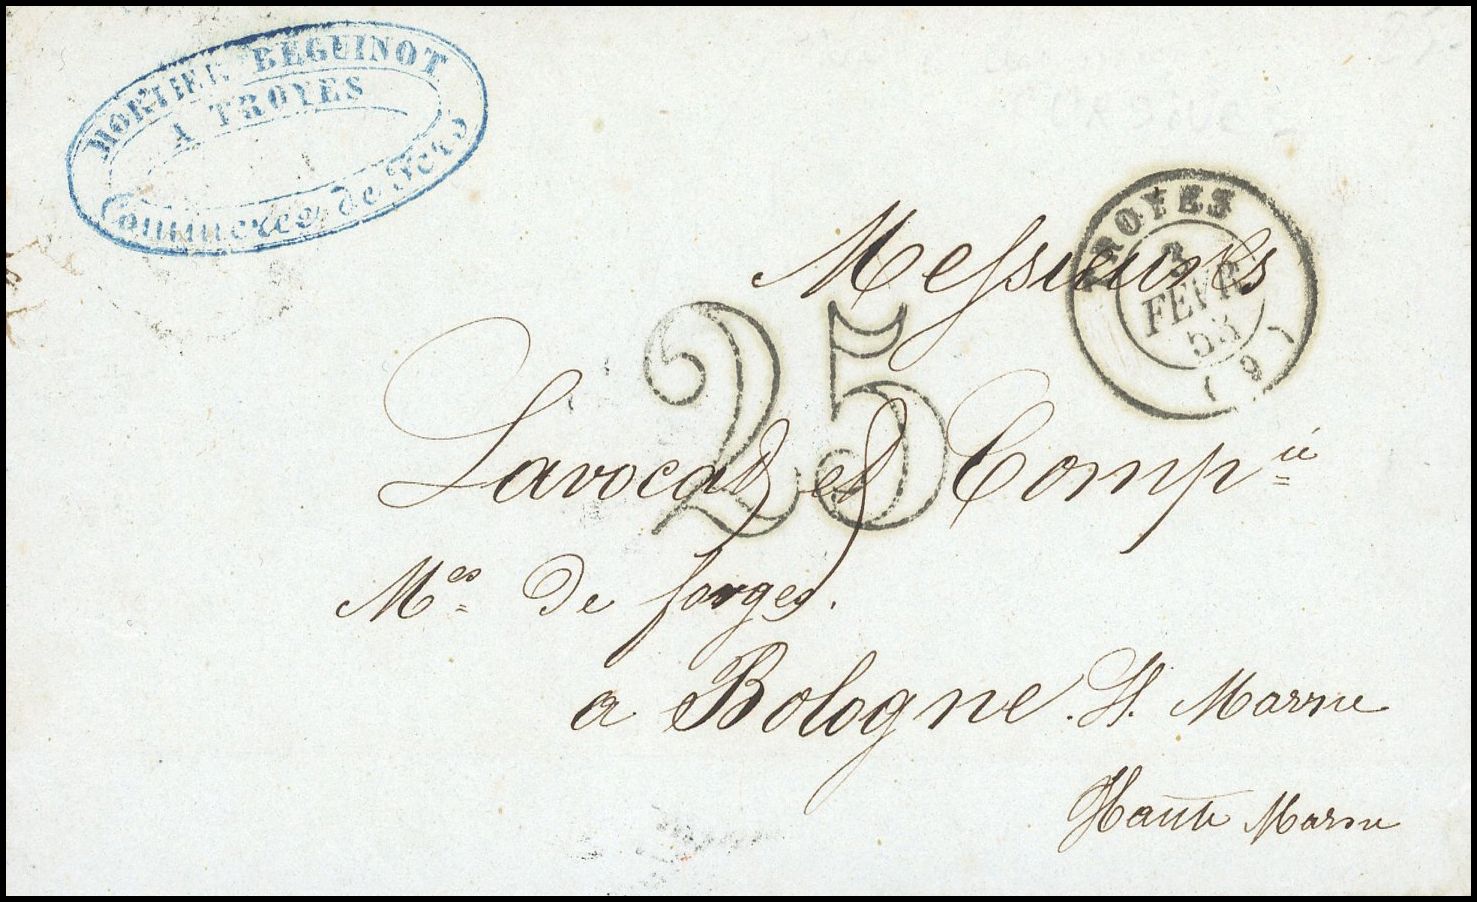 MORTIER BEGUINOT
A TROYES
Commerce de Fers
TROYES
3
FEVR
53
(9)
25
Messieurs
Lavocat et Compie
Mes de forges.
a Bologne. H. Marne
Haute Marne